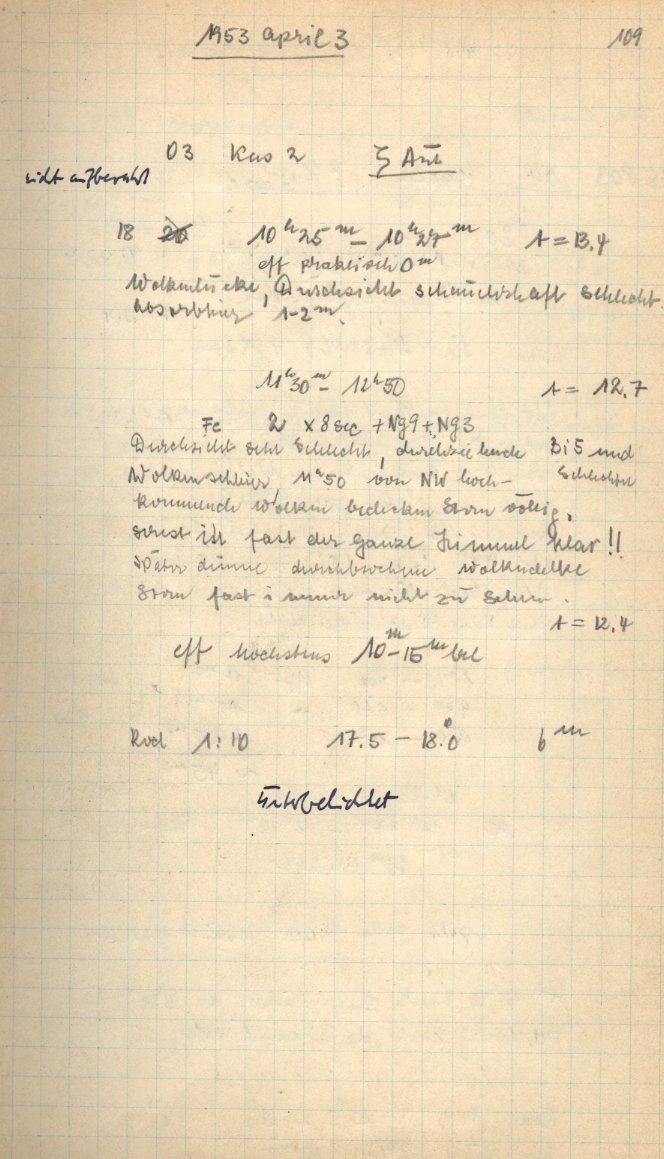 1953 April 3 109
03 Kas 2 ζ Aur
nicht aufbewahrt
18 20 10h25m – 10h27m t = 13.4
eff praktisch 0m
Wolkenlücke, Durchsicht schauderhaft schlecht.
Absorbtion 1-2m.
11h30m – 12h50 t = 12.7
Fe 2 x 8 sec + Ng9 + Ng3
Durchsicht sehr schlecht, durchziehende Bi5 und
Wolkenschleier, 11h50 von NW hoch- schlechter
kommende Wolken bedecken Stern völlig,
sonst ist fast der ganze Himmel klar!!
später dünne durchbrochene Wolkendecke
Stern fast immer nicht zu sehen.
t = 12.4
eff höchstens 10m–15m bel
Rod 1:10 17.5 – 18.0 6m
Unterbelichtet